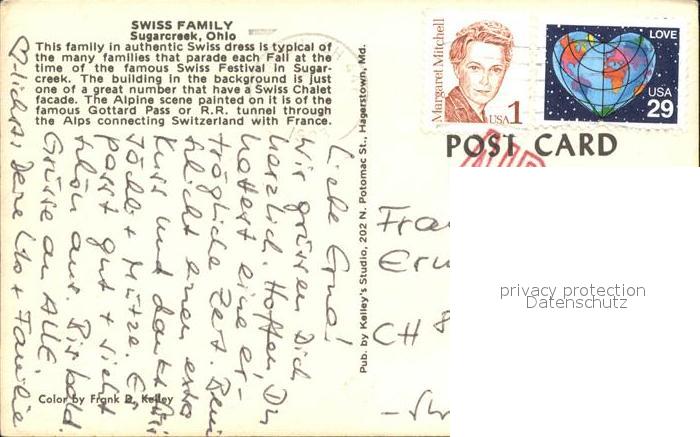 SWISS FAMILY
Sugarcreek, Ohio
This family in authentic Swiss dress is typical of
the many families that parade each Fall at the
time of the famous Swiss Festival in Sugar-
creek. The building in the background is just
one of a great number that have a Swiss Chalet
facade. The Alpine scene painted on it is of the
famous Gottard Pass or R.R. tunnel through
the Alps connecting Switzerland with France.
Liebe Erna!
Wir grüssen Dich
herzlich. Hoffen Du
hattest eine er-
trägliche Zeit. Beni
schickt einen extra
Kuss und dankt für
+ Mütze. Es
passt gut + sieht
schön aus. Bis bald.
Grüsse an ALLE
Deine + Familie
Color by Frank D. Kelley
Pub. by Kelley's Studio, 202 N. Potomac St., Hagerstown, Md.
Margaret Mitchell
USA 1
LOVE
USA
29
POST CARD
Fra
Ern
CH 8
privacy protection
Datenschutz